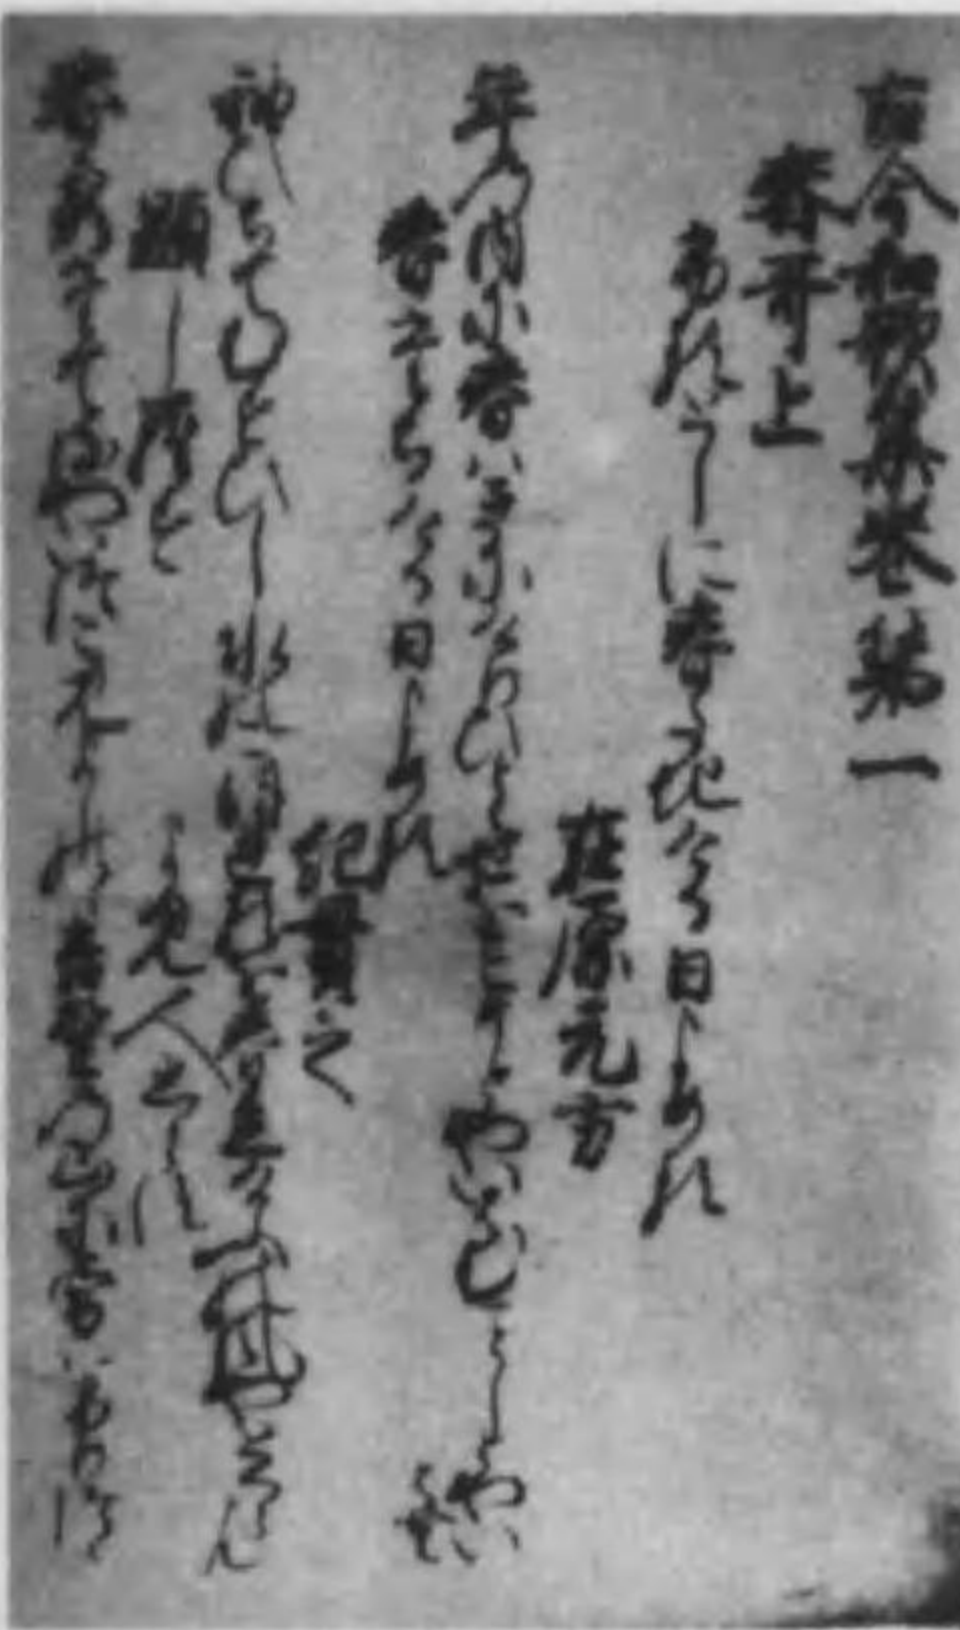 古今和歌集巻第一
春哥上
ふるとしに春たちける日よめる
在原元方
年の内に春はきにけりひとゝせをこそとやいはむことしとやいはむ
春たちける日よめる
紀貫之
袖ひちてむすひし水の
春立けふの風やとくらん
題しらす
よみ人しらす
春霞たてるやいつこみよしのゝ吉野の山に雪はふりつゝ